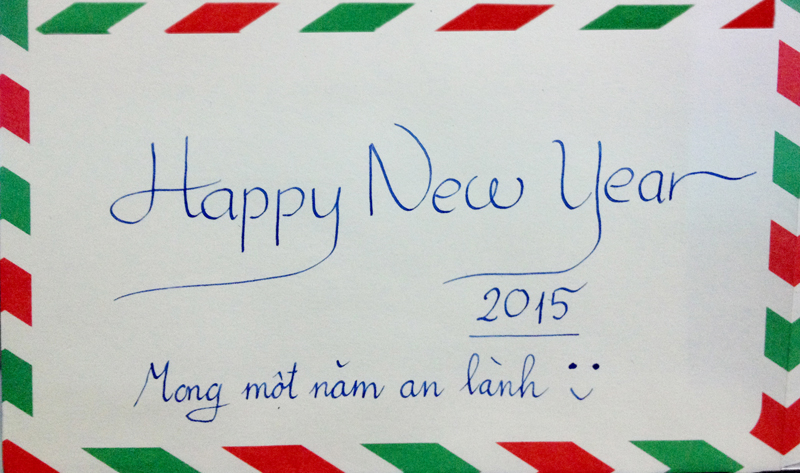 Happy New Year
2015
Mong một năm an lành